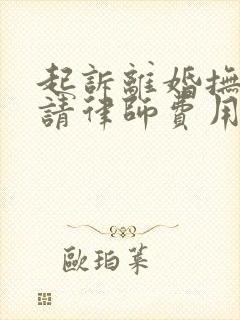 起訴離婚撫
請律師費用
歐珀萊